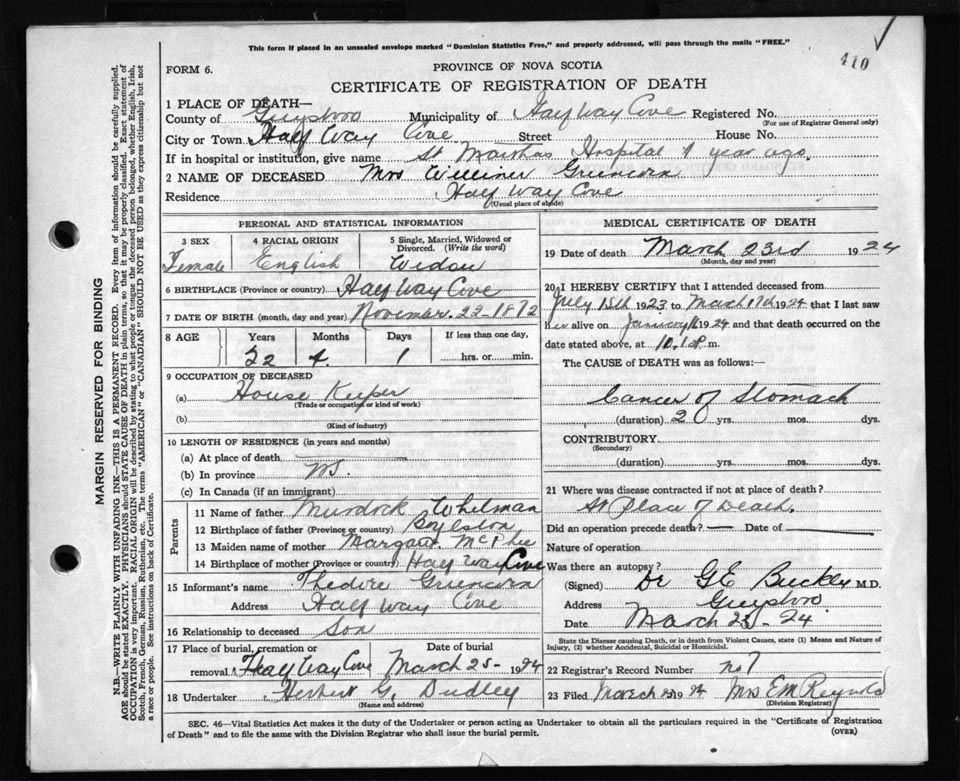 This form if placed in an unsealed envelope marked "Dominion Statistics Free," and properly addressed, will pass through the mails "FREE."
410
FORM 6.
PROVINCE OF NOVA SCOTIA
CERTIFICATE OF REGISTRATION OF DEATH
1 PLACE OF DEATH—
County of Guysboro Municipality of Half Way Cove Registered No.
(For use of Registrar General only)
City or Town Half Way Cove Street House No.
If in hospital or institution, give name St Marthas Hospital 1 year ago.
2 NAME OF DECEASED Mrs
Residence Half Way Cove
(Usual place of abode)
PERSONAL AND STATISTICAL INFORMATION
3 SEX
Female
4 RACIAL ORIGIN
English
5 Single, Married, Widowed or Divorced. (Write the word)
Widow
6 BIRTHPLACE (Province or country) Half Way Cove
7 DATE OF BIRTH (month, day and year) November. 22-1872
8 AGE
Years Months Days If less than one day,
4. 1 hrs. or min.
9 OCCUPATION OF DECEASED
(a) House Keeper
(Trade or occupation or kind of work)
(b)
(Kind of industry)
10 LENGTH OF RESIDENCE (in years and months)
(a) At place of death
(b) In province NS.
(c) In Canada (if an immigrant)
Parents
11 Name of father Murdock Whitman
12 Birthplace of father (Province or country) Boylston
13 Maiden name of mother Margaret McPhee
14 Birthplace of mother (Province or country) Half Way Cove
15 Informant's name
Address Half Way Cove
16 Relationship to deceased Son
17 Place of burial, cremation or removal Half Way Cove
Date of burial
March 25- 1924
18 Undertaker Herbert G. Dudley
(Name and address)
MEDICAL CERTIFICATE OF DEATH
19 Date of death March 23rd 1924
(Month, day and year)
20 I HEREBY CERTIFY that I attended deceased from
July 1923 to March 17th 1924 that I last saw
her alive on January 1924 and that death occurred on the
date stated above, at m.
The CAUSE of DEATH was as follows:
Cancer of Stomach
(duration) 2 yrs. mos. dys.
CONTRIBUTORY
(Secondary)
(duration) yrs. mos. dys.
21 Where was disease contracted if not at place of death?
At Place of Death.
Did an operation precede death? — Date of
Nature of operation
Was there an autopsy?
(Signed) Dr GE Buckley M.D.
Address Guysboro.
Date March 25-24
State the Disease causing Death, or in death from Violent Causes, state (1) Means and Nature of Injury, (2) whether Accidental, Suicidal or Homicidal.
22 Registrar's Record Number no 7
23 Filed March 1924 Mrs E M Reynolds
(Division Registrar)
SEC. 46—Vital Statistics Act makes it the duty of the Undertaker or person acting as Undertaker to obtain all the particulars required in the "Certificate of Registration
of Death" and to file the same with the Division Registrar who shall issue the burial permit.
(OVER)
MARGIN RESERVED FOR BINDING
N.B.—WRITE PLAINLY WITH UNFADING INK—THIS IS A PERMANENT RECORD. Every item of information should be carefully supplied.
AGE should be stated EXACTLY. PHYSICIANS should STATE CAUSE OF DEATH in plain terms, so that it may be properly classified. Exact statement of
OCCUPATION is very important. RACIAL ORIGIN will be described by stating to what people or tongue the deceased person belonged, whether English, Irish,
Scotch, French, German, Russian, Ruthenian, etc. The terms "AMERICAN" or "CANADIAN" SHOULD NOT BE USED as they express citizenship but not
a race or people. See instructions on back of Certificate.